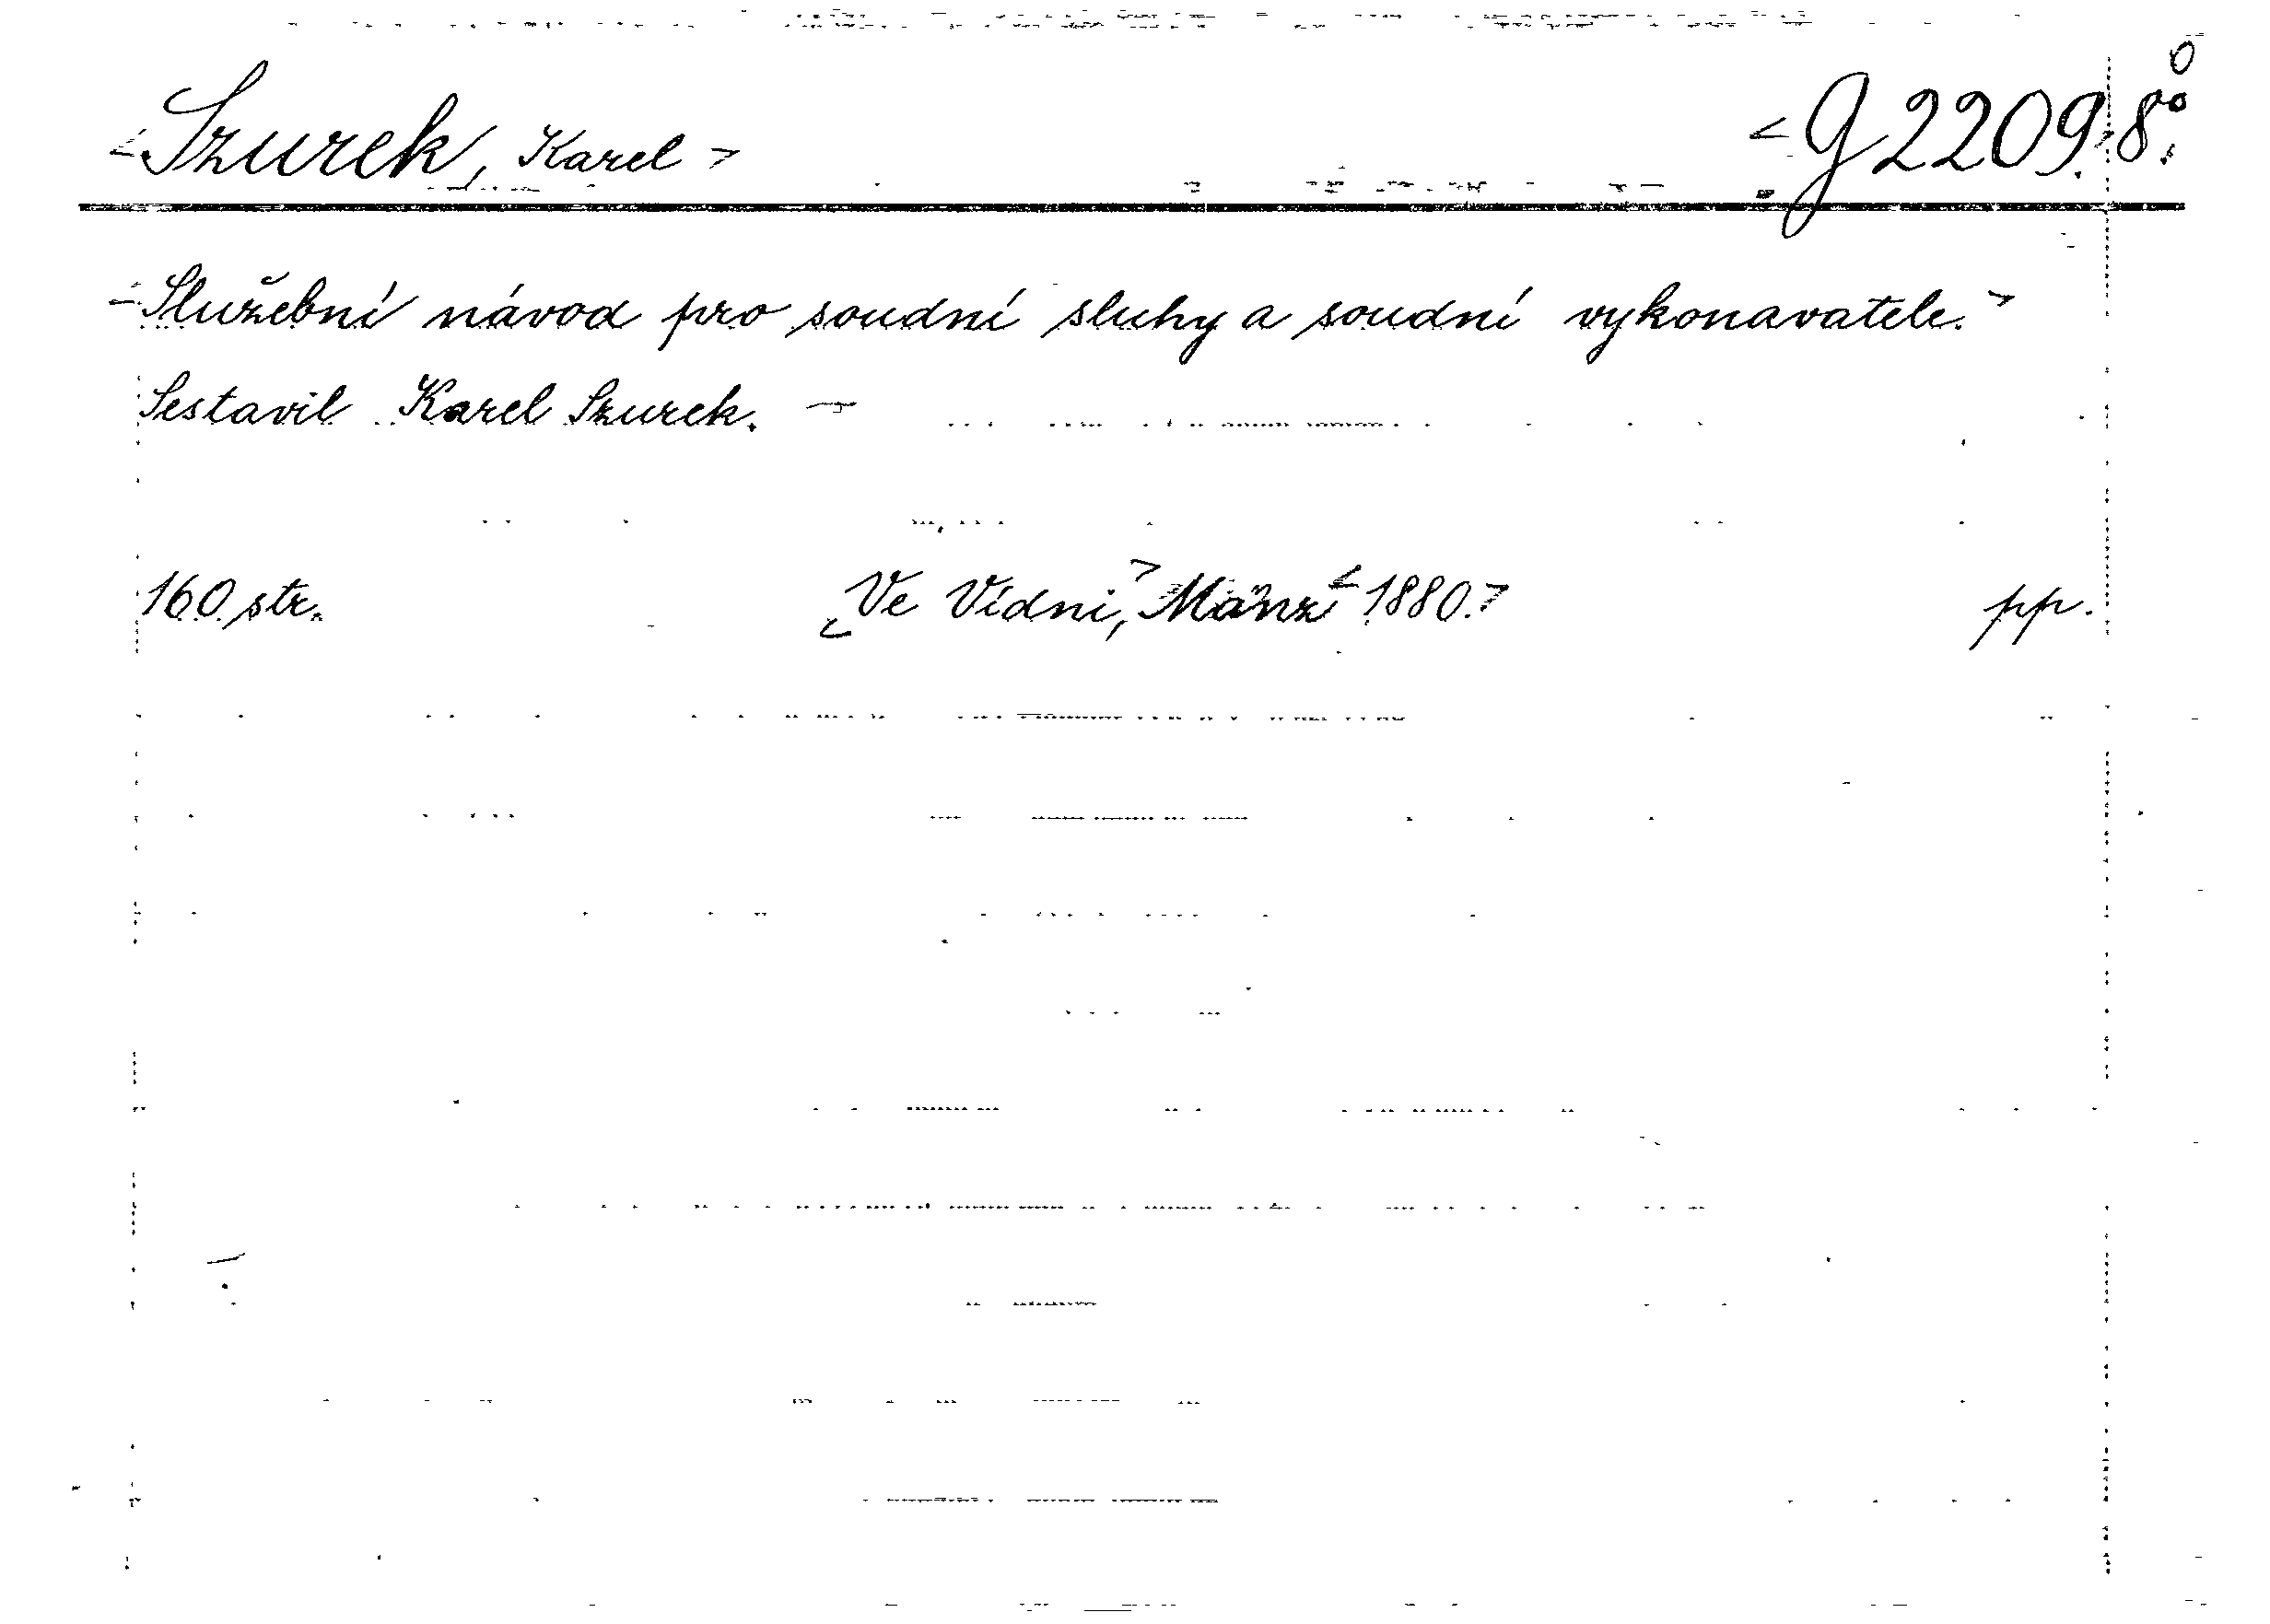 <Szurek, Karel> <G 2209.>8°.
<Služební návod pro soudní sluhy a soudní vykonavatele.>
Sestavil Karel Szurek. —
160 str. <Ve Vídni,> Manz <1880.> pp.